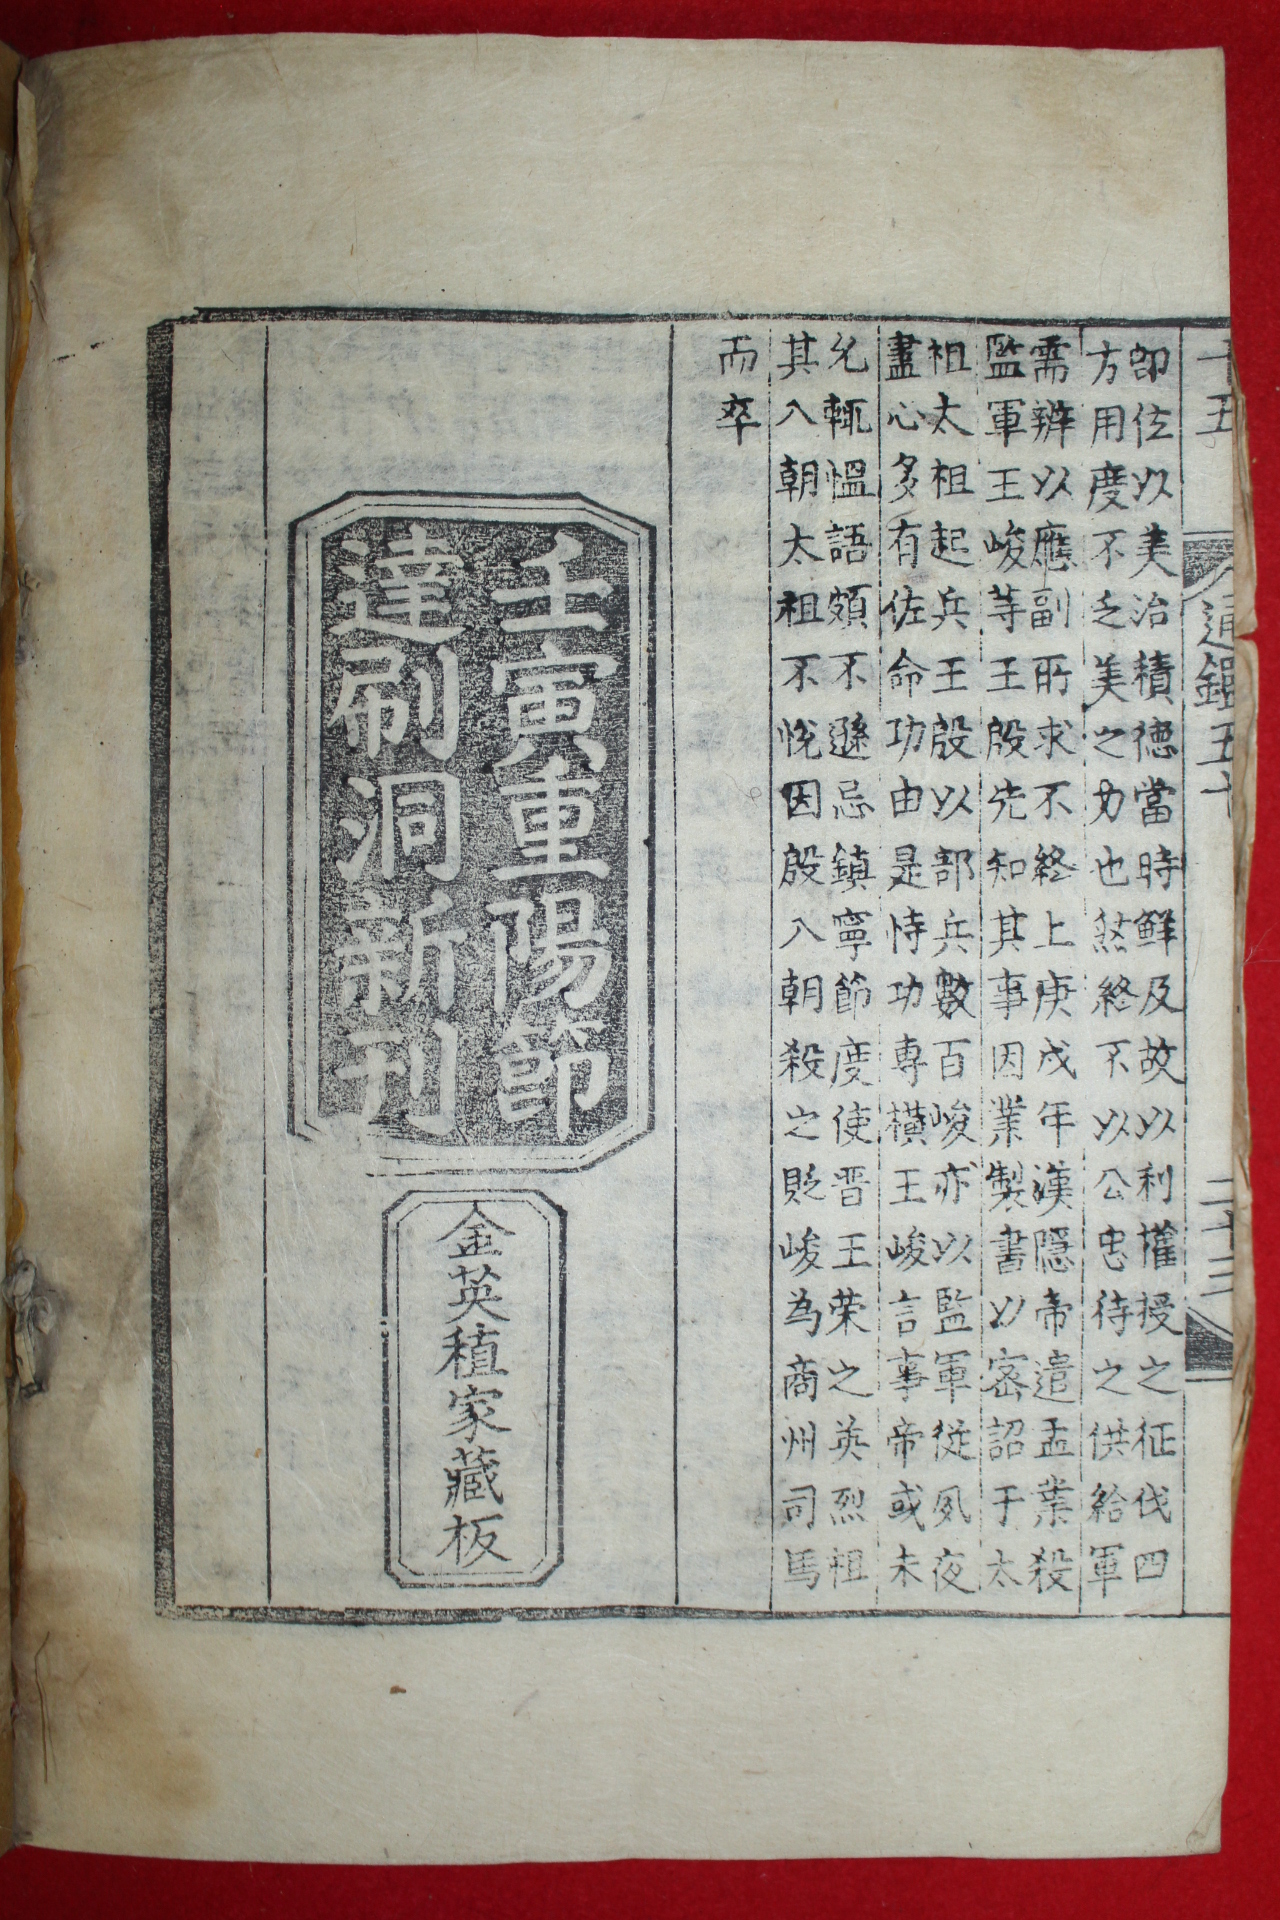 十五
通鑑五十
二十三
卽位以美治積德當時鮮及故以利權授之征伐四
方用度不乏美之力也然終不以公忠待之供給軍
需辨以應副所求不終上庚戌年漢隱帝遣孟業殺
監軍王峻等王殷先知其事因業製書以密詔于太
祖太祖起兵王殷以部兵數百峻亦以監軍從夙夜
盡心多有佐命功由是恃功專横王峻言事帝或未
允輒慍語頗不遜忌鎭寧節度使晋王荣之英烈祖
其入朝太祖不悅因殷入朝殺之貶峻為商州司馬
而卒
壬寅重陽節
達刷洞新刊
金英稙家藏板